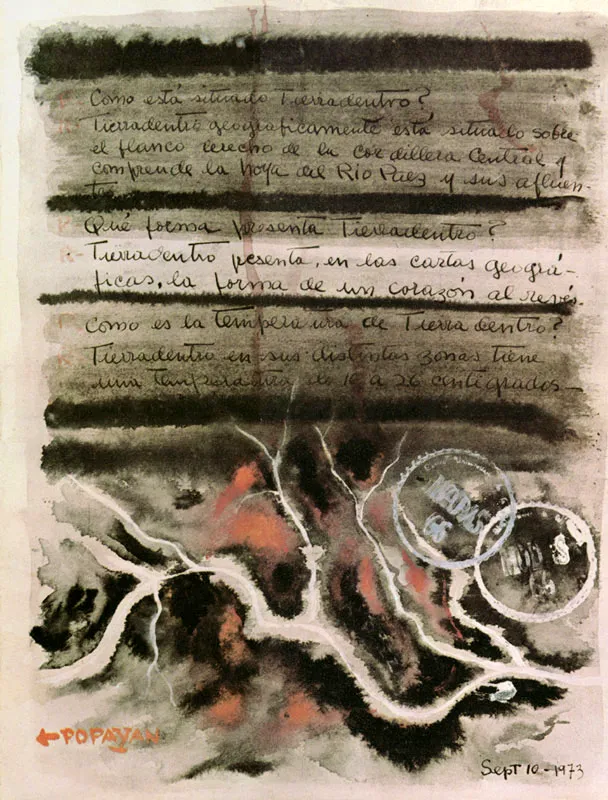 Como está situado Tierradentro?
Tierradentro geograficamente está situado sobre
el flanco derecho de la cordillera Central y
comprende la hoya del Río Paez y sus afluen-
tes.
Qué forma presenta Tierradentro?
R- Tierradentro presenta, en las cartas geográ-
ficas, la forma de un corazón al revés.
Como es la temperatura de Tierradentro?
Tierradentro en sus distintas zonas tiene
una temperatura de 16 a 26 centigrados-
66
← POPAYAN
Sept 10-1973